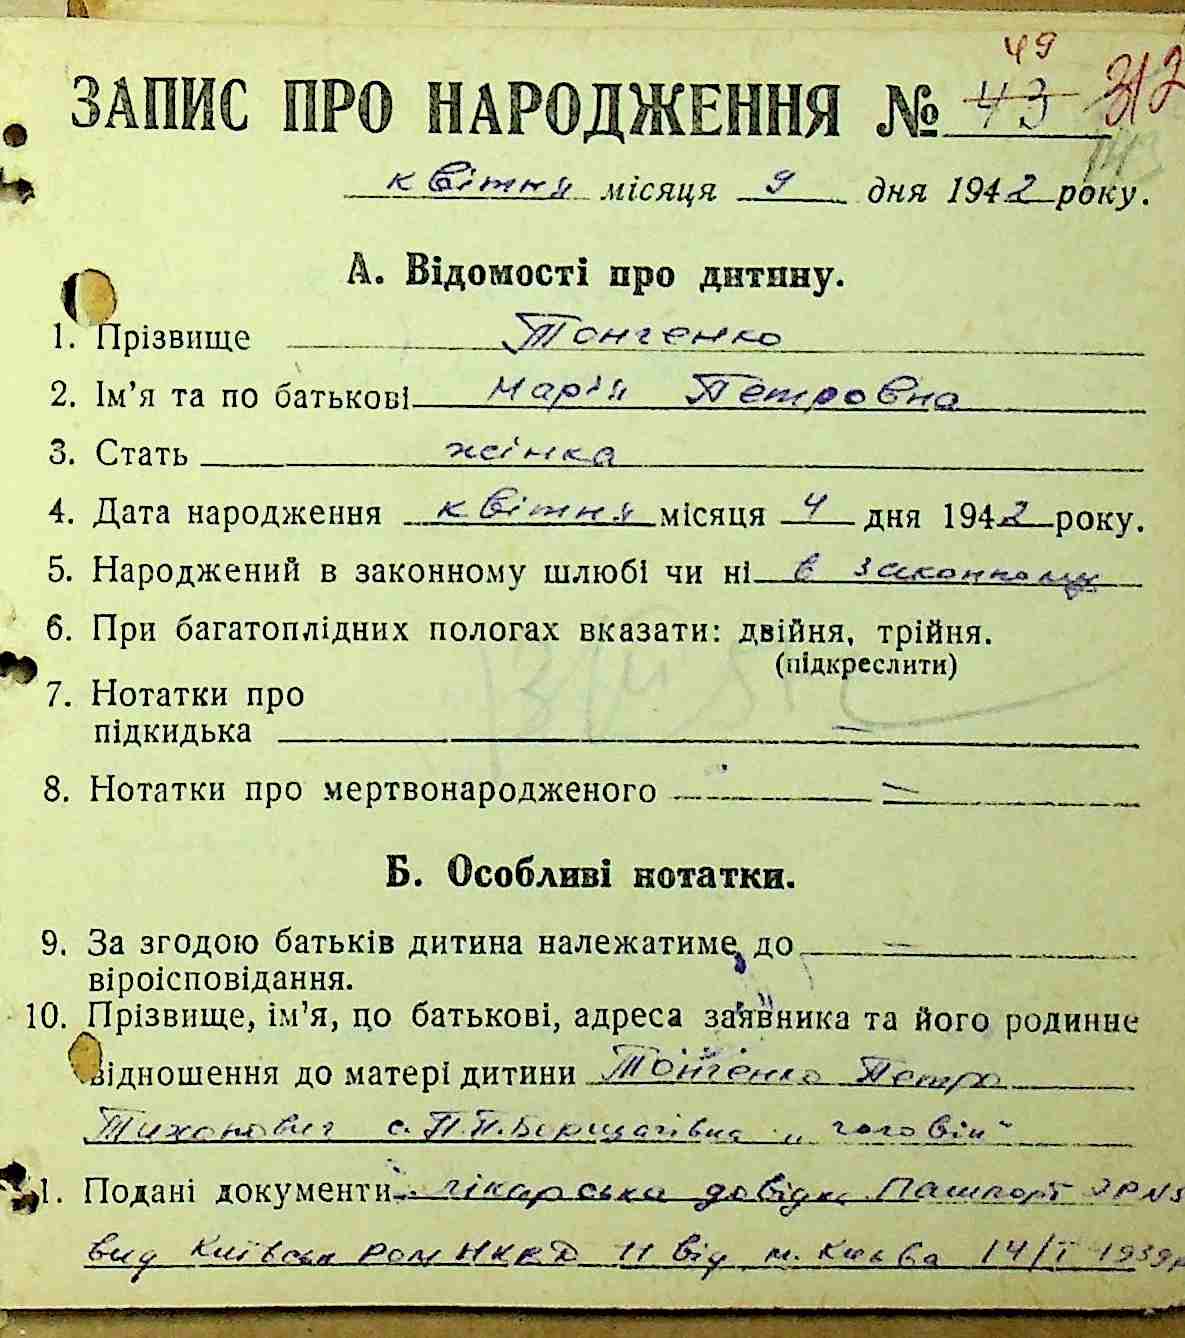 49 312
ЗАПИС ПРО НАРОДЖЕННЯ № 43
143
квітня місяця 9 дня 1942 року.
А. Відомості про дитину.
1. Прізвище Тонченко
2. Ім’я та по батькові Марія Петровна
3. Стать жінка
4. Дата народження квітня місяця 4 дня 1942 року.
5. Народжений в законному шлюбі чи ні в законному
6. При багатоплідних пологах вказати: двійня, трійня.
(підкреслити)
7. Нотатки про
підкидька —
8. Нотатки про мертвонародженого —
Б. Особливі нотатки.
9. За згодою батьків дитина належатиме до —
віроісповідання.
10. Прізвище, ім’я, по батькові, адреса заявника та його родинне
відношення до матері дитини Тонченко Петро
Тихонович с. П.П. Борщагівка „чоловік“
11. Подані документи лікарська довідк Пашпорт
вид Київськ НКВД 11 від м. Києва 14/I 1939р